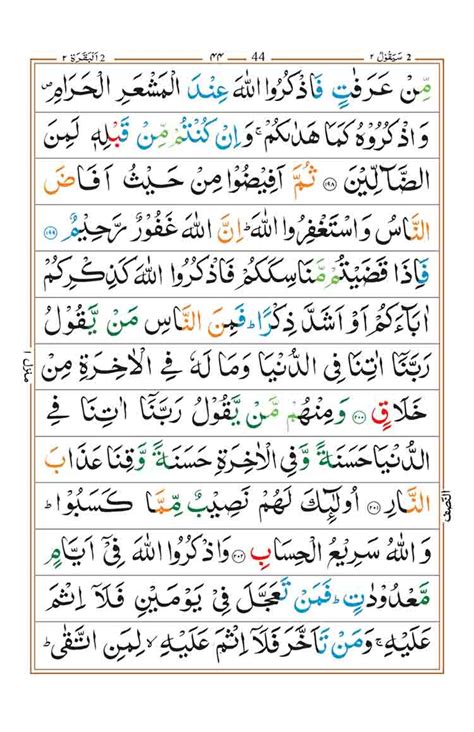 2 سَيَقُوۡلُ ٢ 44 ۴۴ 2 اَلۡبَقَرَة ٢
مِّنۡ عَرَفٰتٍ فَاذۡكُرُوا اللّٰهَ عِنۡدَ الۡمَشۡعَرِ الۡحَـرَامِ ۖ
وَاذۡکُرُوۡهُ كَمَا هَدٰٮکُمۡ‌ۚ وَاِنۡ کُنۡتُمۡ مِّنۡ قَبۡلِهٖ لَمِنَ
الضَّآلِّيۡنَ ‏۱۹۸ ثُمَّ اَفِيۡضُوۡا مِنۡ حَيۡثُ اَفَاضَ
النَّاسُ وَاسۡتَغۡفِرُوا اللّٰهَ‌ؕ اِنَّ اللّٰهَ غَفُوۡرٌ رَّحِيۡمٌ ۱۹۹
فَاِذَا قَضَيۡتُمۡ مَّنَاسِكَکُمۡ فَاذۡکُرُوا اللّٰهَ كَذِكۡرِكُمۡ
اٰبَآءَکُمۡ اَوۡ اَشَدَّ ذِکۡرًا ؕ فَمِنَ النَّاسِ مَنۡ يَّقُوۡلُ
رَبَّنَآ اٰتِنَا فِى الدُّنۡيَا وَمَا لَهٗ فِى الۡاٰخِرَةِ مِنۡ
خَلَاقٍ‏ ۲۰۰ وَمِنۡهُمۡ مَّنۡ يَّقُوۡلُ رَبَّنَآ اٰتِنَا فِى
الدُّنۡيَا حَسَنَةً وَّفِى الۡاٰخِرَةِ حَسَنَةً وَّقِنَا عَذَابَ
النَّارِ‏ ۲۰۱ اُولٰٓٮِٕكَ لَهُمۡ نَصِيۡبٌ مِّمَّا كَسَبُوۡا ‌ؕ
وَاللّٰهُ سَرِيۡعُ الۡحِسَابِ‏ ۲۰۲ وَاذۡكُرُوا اللّٰهَ فِىۡٓ اَيَّامٍ
مَّعۡدُوۡدٰتٍ‌ؕ فَمَنۡ تَعَجَّلَ فِىۡ يَوۡمَيۡنِ فَلَاۤ اِثۡمَ
عَلَيۡهِ ۚ وَمَنۡ تَاَخَّرَ فَلَاۤ اِثۡمَ عَلَيۡهِ ۙ لِمَنِ اتَّقٰى ؕ
منزل ١
النصف